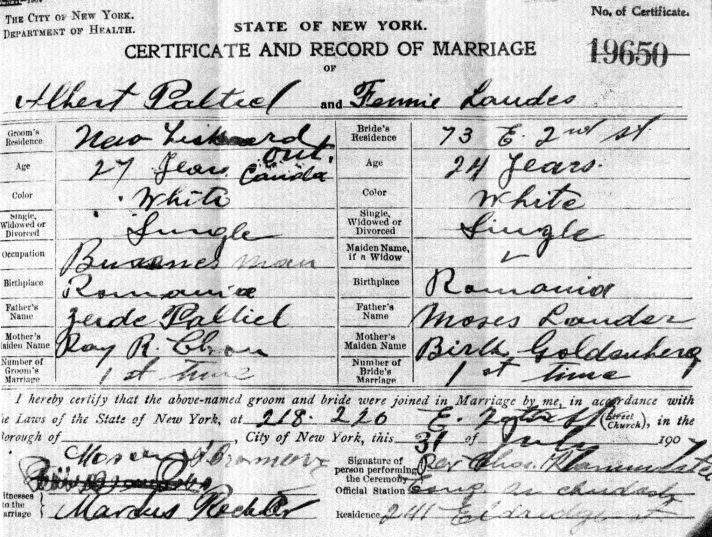 THE CITY OF NEW YORK.
DEPARTMENT OF HEALTH.
STATE OF NEW YORK.
No. of Certificate.
CERTIFICATE AND RECORD OF MARRIAGE
19650
OF
Albert Paltiel and Fennie Landes
Groom's Residence New Liskeard Ont. Canada
Bride's Residence 73 E. 2nd st
Age 27 Years
Age 24 Years.
Color White
Color White
Single, Widowed or Divorced Single
Single, Widowed or Divorced Single
Occupation Man
Maiden Name, if a Widow
Birthplace Romania
Birthplace Romania
Father's Name Paltiel
Father's Name Moses Landes
Mother's Maiden Name Ray R.
Mother's Maiden Name Goldenberg
Number of Groom's Marriage 1st time
Number of Bride's Marriage 1st time
I hereby certify that the above-named groom and bride were joined in Marriage by me, in accordance with
the Laws of the State of New York, at 218-220 E. (Street Church), in the
Borough of , City of New York, this 31 of July 1907
Signature of person performing the Ceremony Rev
Official Station
Witnesses to the Marriage Marcus
Residence 241 Eldridge st